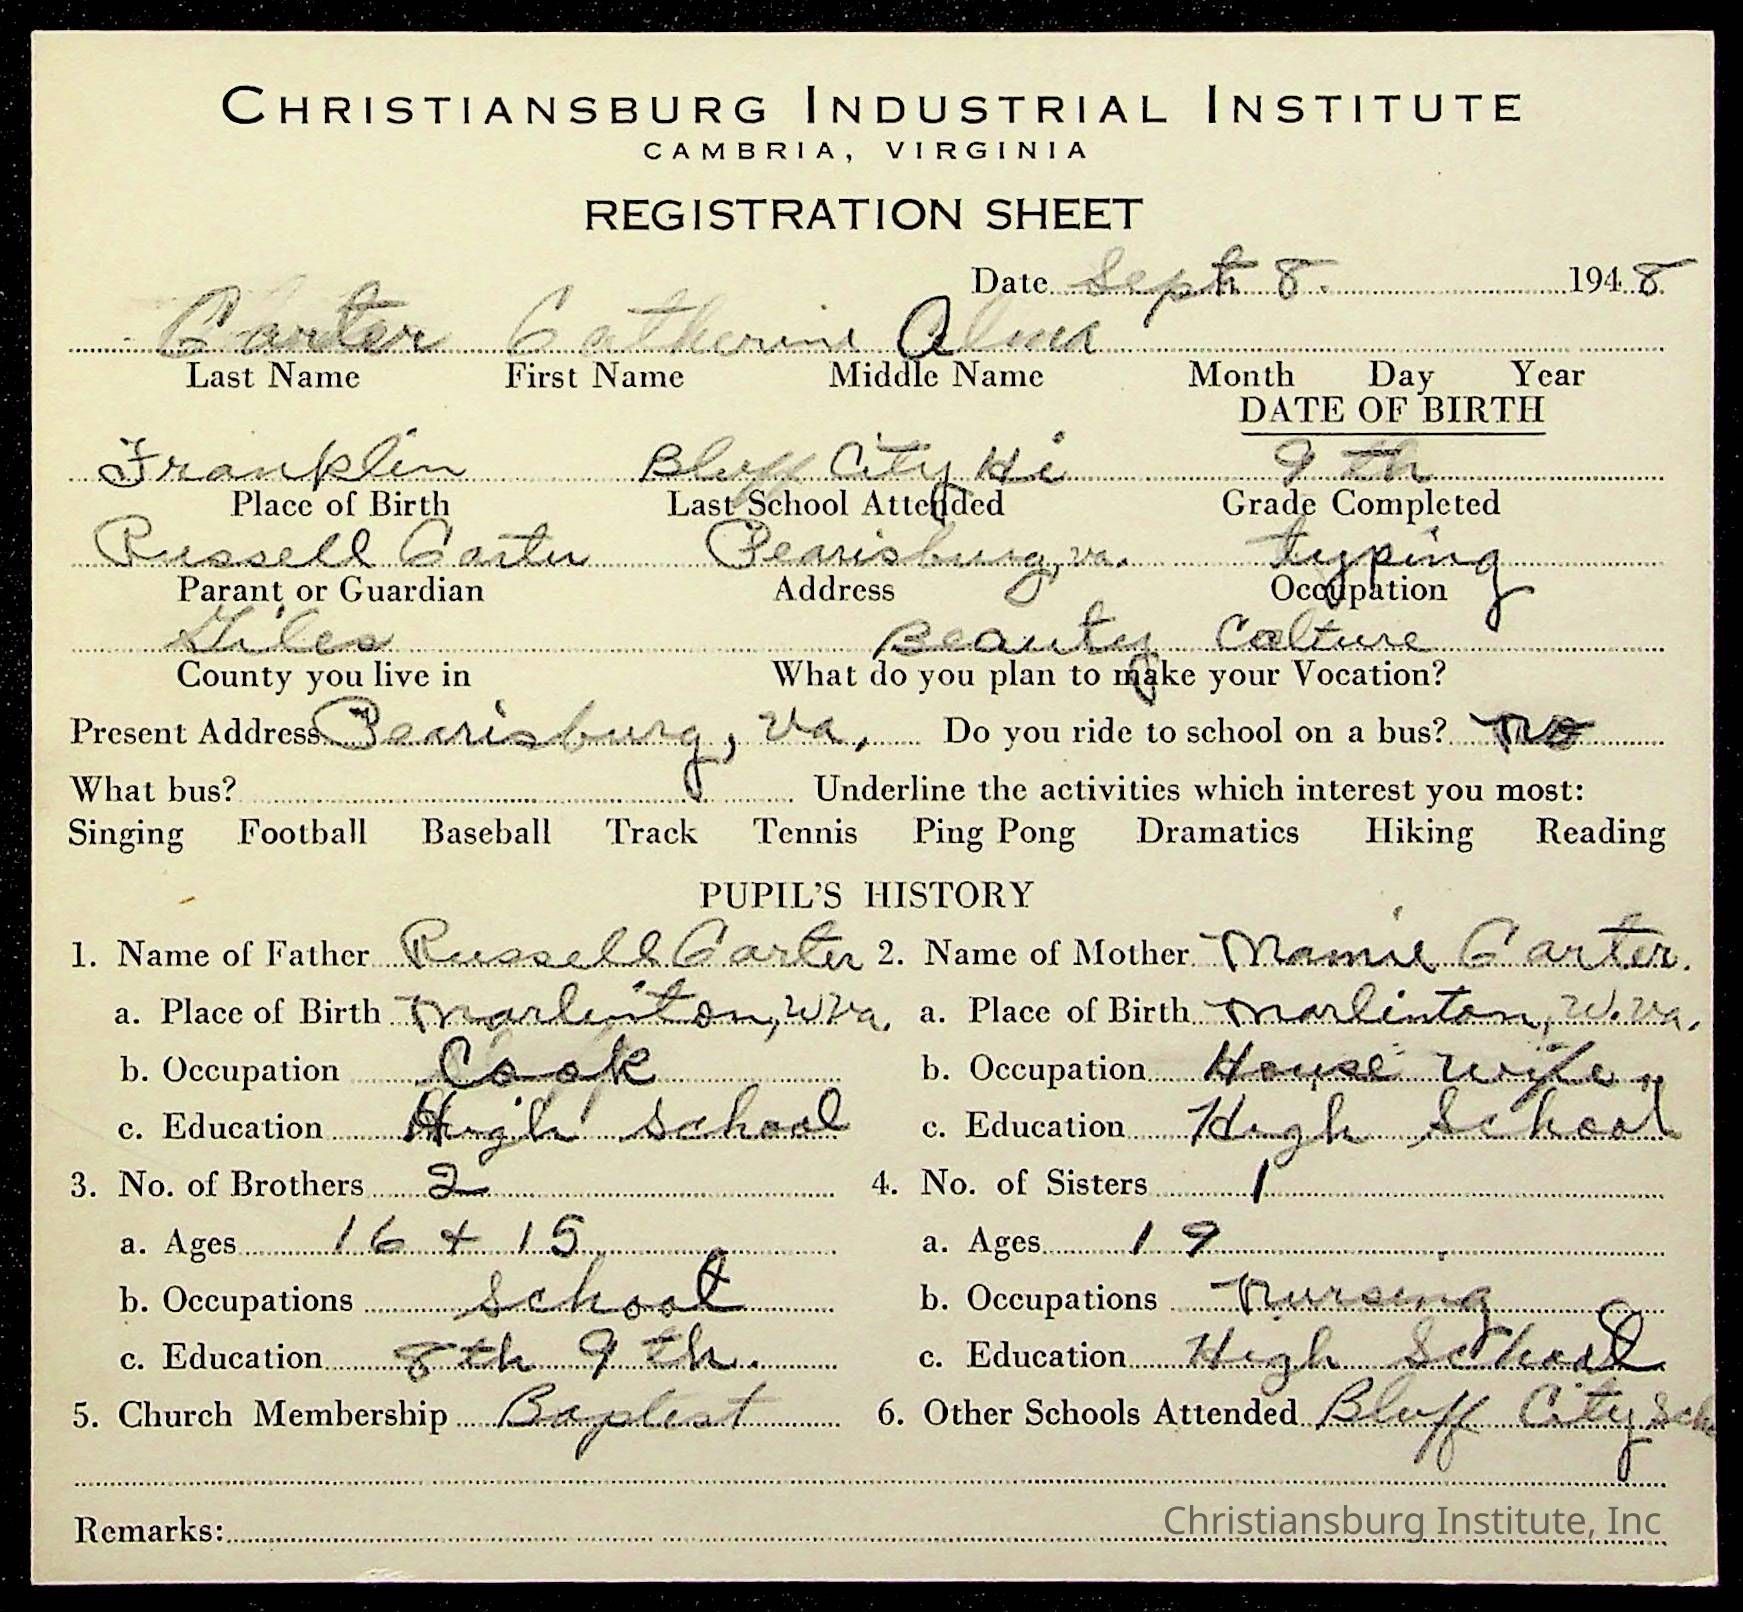 CHRISTIANSBURG INDUSTRIAL INSTITUTE
CAMBRIA, VIRGINIA
REGISTRATION SHEET
Date Sept 8. 1948
Carter Catherine Alma
Last Name First Name Middle Name Month Day Year
DATE OF BIRTH
Franklin Bluff City Hi 9th
Place of Birth Last School Attended Grade Completed
Russell Carter Pearisburg, va. typing
Parant or Guardian Address Occupation
Giles Beauty Colture
County you live in What do you plan to make your Vocation?
Present Address Pearisburg, va, Do you ride to school on a bus? no
What bus? Underline the activities which interest you most:
Singing Football Baseball Track Tennis Ping Pong Dramatics Hiking Reading
PUPIL'S HISTORY
1. Name of Father Russell Carter 2. Name of Mother Mamie Carter.
a. Place of Birth Marlinton, W va. a. Place of Birth Marlinton, W. va.
b. Occupation Cook b. Occupation House wife
c. Education High School c. Education High School
3. No. of Brothers 2 4. No. of Sisters 1
a. Ages 16 + 15 a. Ages 19
b. Occupations School b. Occupations Nursing
c. Education 8th 9th. c. Education High School
5. Church Membership Baptist 6. Other Schools Attended Bluff City Sch
Remarks:
Christiansburg Institute, Inc